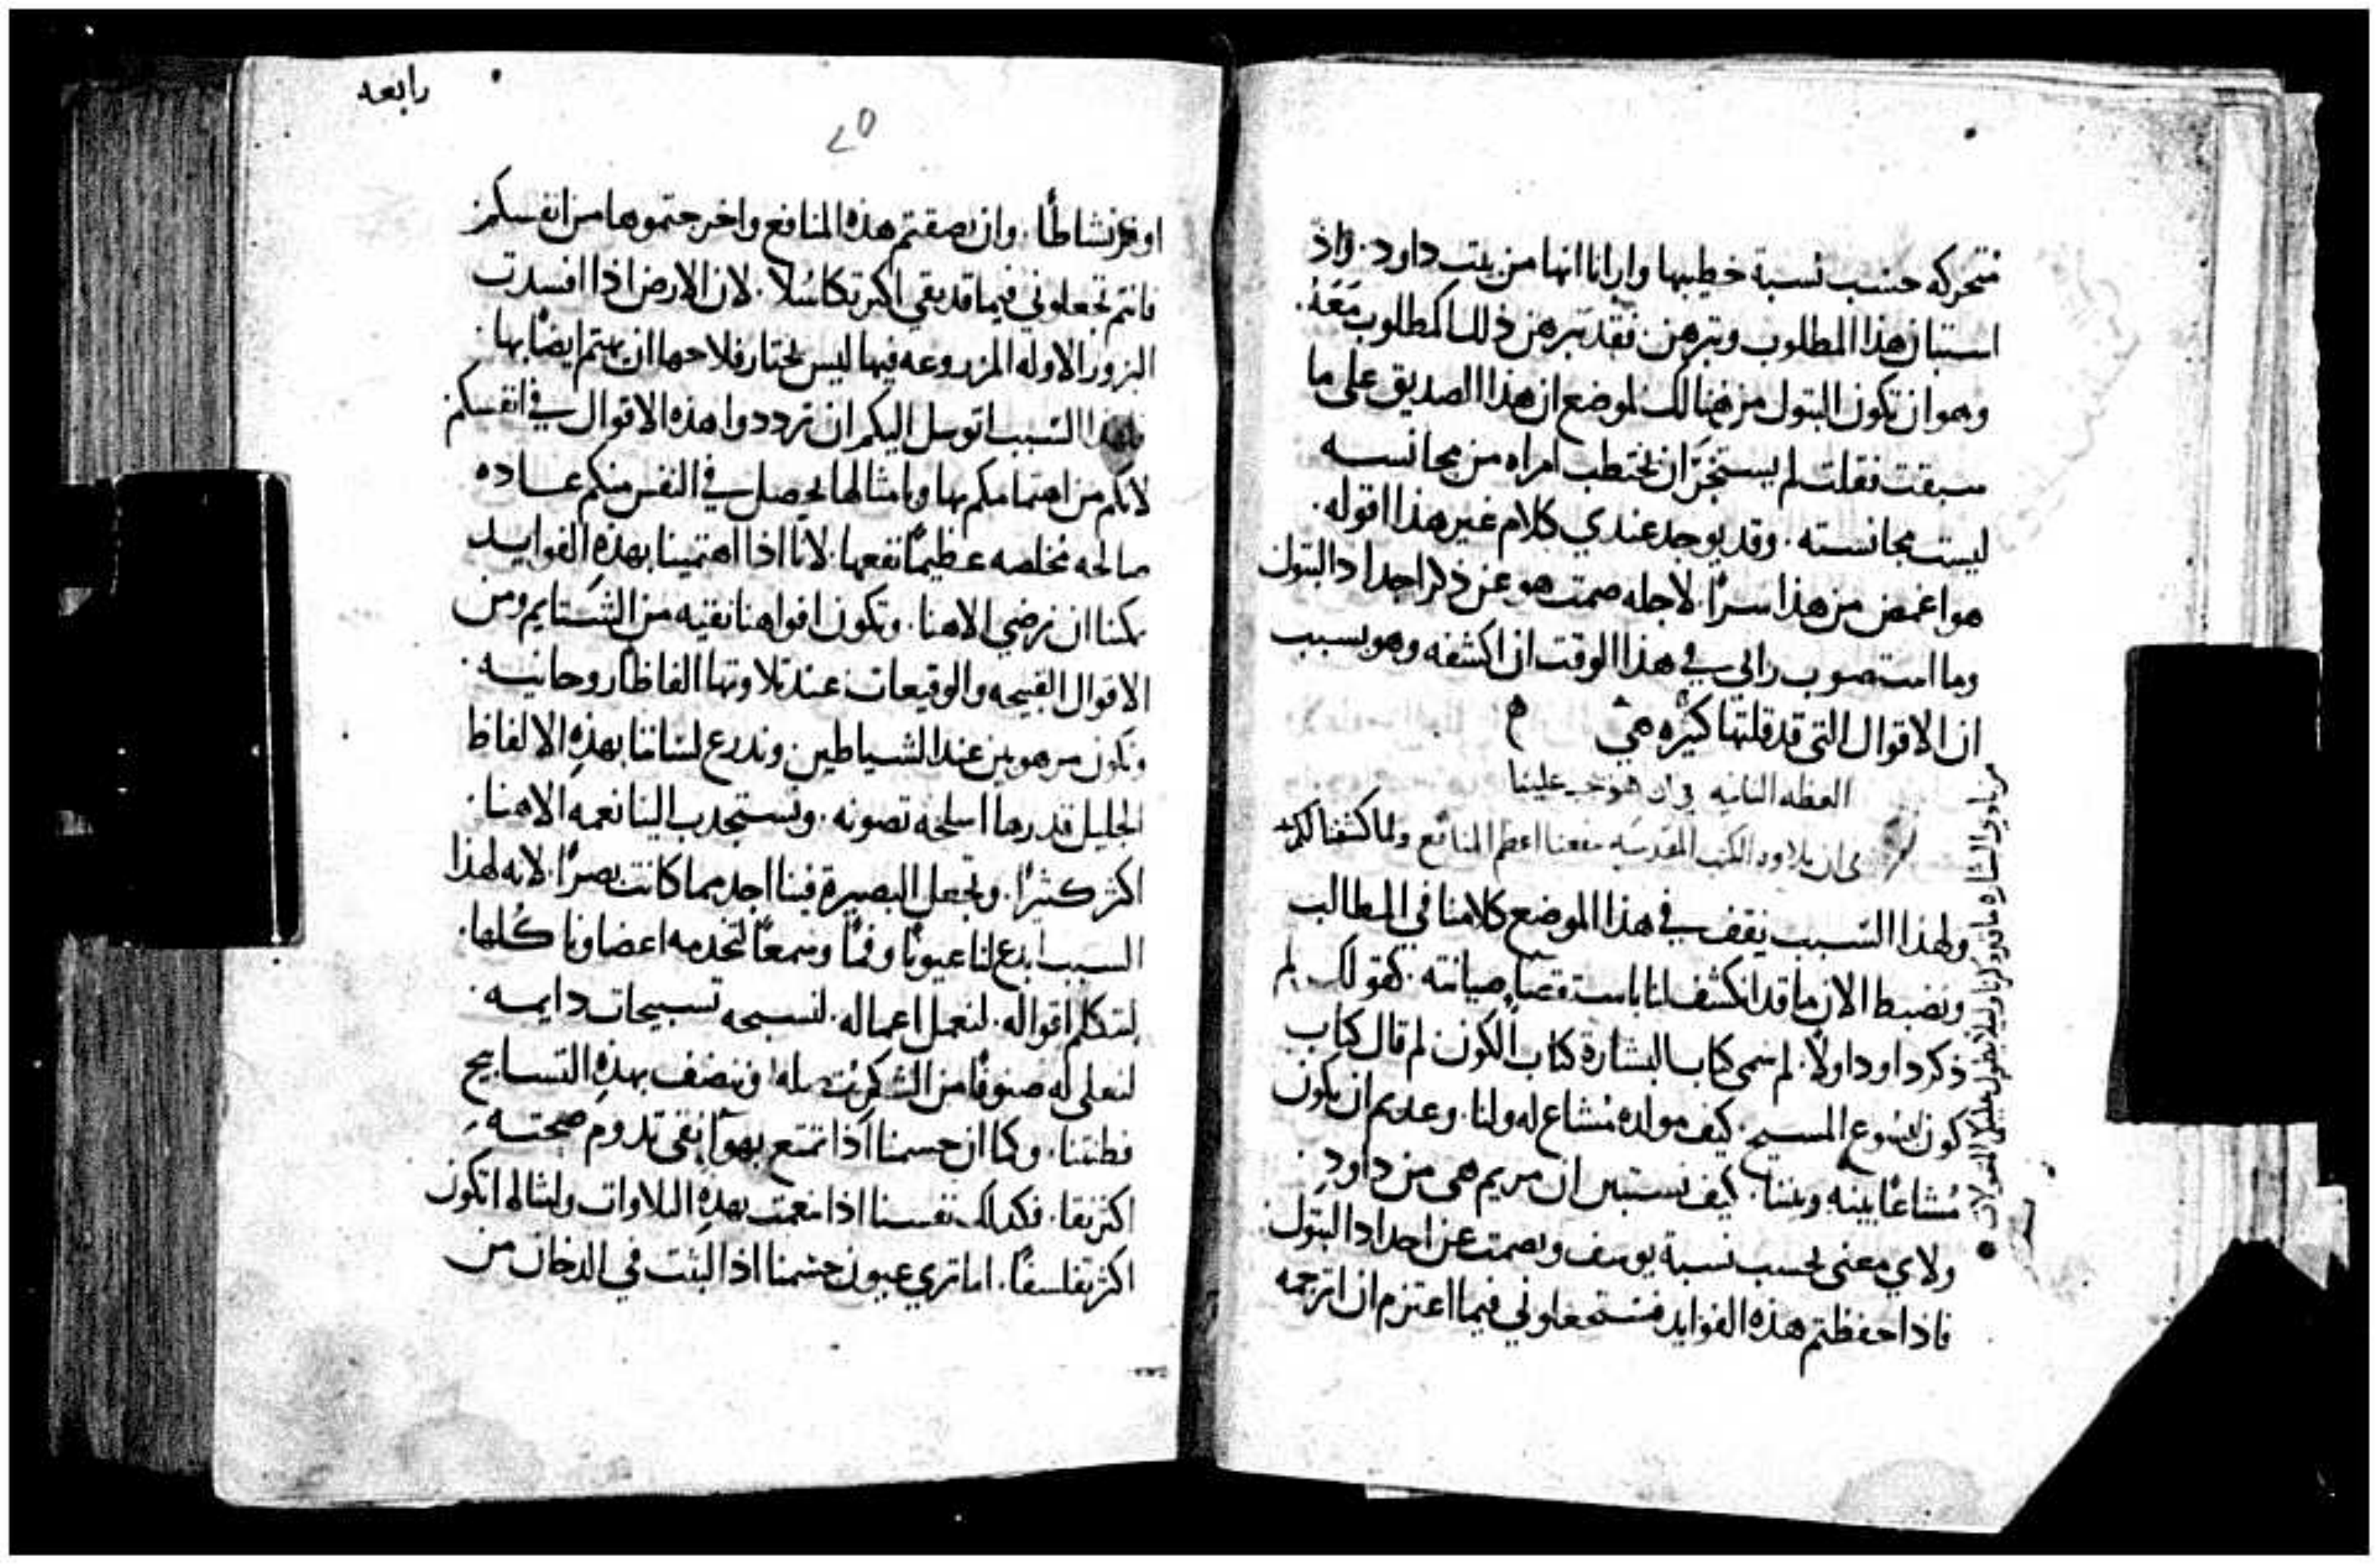 متحركه حسب نسبة خطيبها وارانا انها من بيت داود. واذ
استبان هذا المطلوب وتبرهن فقد تبرهن ذلك المطلوب معه.
وهو ان تكون البتول من هنالك لموضع ان هذا الصديق على ما
سبقت فقلت لم يستجز ان يختطب امراه من مجانسه
ليست مجانسته. وقد يوجد عندي كلام غير هذا اقوله.
هو اغمض من هذا سرًا. لاجله صمت هو عن ذكر اجداد البتول
وما استصوب رايي في هذا الوقت ان اكشفه وهو بسبب
ان الاقوال التي قد قلتها كثيره هي
العظه الثانيه في ان هو يجب علينا
في ان تلاوه الكتب المقدسه تنفعنا اعظم المنافع ولما كشفنا لكم
ولهذا السبب يقف في هذا الموضع كلامنا في المطالب
ونضبط الان ما قد انكشف لنا باستقصا صيانته. كقولك لم
ذكر داود اولًا. لم سمى كتاب البشارة كتاب الكون لم قال كتاب
كون ايسوع المسيح. كيف مولده مشاع له ولنا. وعديم ان يكون
مشاعًا بينه وبيننا. كيف نستبين ان مريم هي من داود.
ولاي معنى تحسب نسبة يوسف ويصمت عن اجداد البتول
فاذا حفظتم هذه الفوايد فستجعلوني فيما اعتزم ان اترجمه
رابعه
٢٥
اوفر نشاطًا. وان بصقتم هذه المنافع واخرجتموها من انفسكم
فانتم تجعلوني فيما قد بقي اكثر تكاسلا. لان الارض اذا افسدت
البزور الاوله المزروعه فيها ليس يختار فلاحها ان يهتم ايضًا بها.
فلهذا السبب اتوسل اليكم ان ترددوا هذه الاقوال في انفسكم
لانكم من اهتمامكم بها وبامثالها يحصل في النفس منكم عاده
صالحه مخلصه عظيمًا نفعها. لانا اذا اهتمينا بهذه الفوايد
يمكنا ان نرضي الاهنا. وتكون افواهنا نقيه من الشتايم ومن
الاقوال القبيحه والوقيعات عند تلاوتها الفاظًا روحانيه.
ونكون مرهوبين عند الشياطين وندرع لساننا بهذه الالفاظ
الجليل قدرها اسلحه تصونه. ونستجدب الينا نعمه الاهنا.
اكثر كثيرًا. وتجعل البصيرة فينا احد مما كانت بصرًا. لانه لهذا
السبب ابدع لنا عيونًا وفمًا وسمعًا لتخدمه اعضاونا كلها.
لنتكلم اقواله. لنعمل اعماله. لنسبحه تسبيحات دايمه.
لنعلي له صنوفًا من الشكر متصله وننضف بهذه التسابيح
فطنتنا. وكما ان جسمنا اذا تمتع بهوآ نقي تدوم صحته
اكثر بقا. فكذلك نفسنا اذا نعمت بهذه التلاوات وامثالها تكون
اكثر تفلسفًا. اما تري عيون جسمنا اذا لبثت في الدخان من